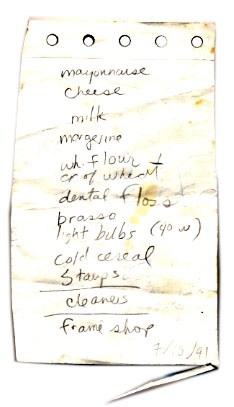 mayonnaise
cheese
milk
margerine
wh. flour +
cr of wheat
dental floss
brasso
light bulbs (40 w)
cold cereal
stamps
cleaners
frame shop